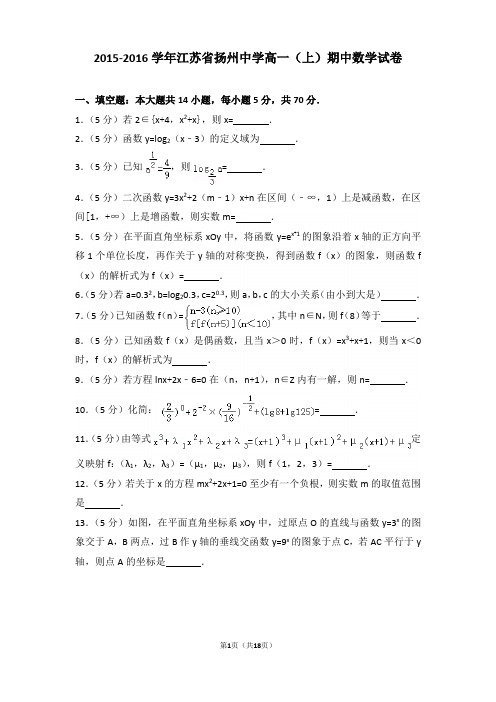 2015-2016 学年江苏省扬州中学高一（上）期中数学试卷
一、填空题：本大题共 14 小题，每小题 5 分，共 70 分．
1．（5 分）若 2∈{x+4，x²+x}，则 x=　　　．
2．（5 分）函数 y=log₂（x﹣3）的定义域为　　　．
3．（5 分）已知 a^(1/2)=4/9，则 log_(2/3) a=　　　．
4．（5 分）二次函数 y=3x²+2（m﹣1）x+n 在区间（﹣∞，1）上是减函数，在区
间[1，+∞）上是增函数，则实数 m=　　　．
5．（5 分）在平面直角坐标系 xOy 中，将函数 y=eˣ⁺¹ 的图象沿着 x 轴的正方向平
移 1 个单位长度，再作关于 y 轴的对称变换，得到函数 f（x）的图象，则函数 f
（x）的解析式为 f（x）=　　　．
6．（5 分）若 a=0.3²，b=log₂0.3，c=2^0.3，则 a，b，c 的大小关系（由小到大是）　　　．
7．（5 分）已知函数 f（n）={n-3(n≥10) f[f(n+5)](n<10)，其中 n∈N，则 f（8）等于　　　．
8．（5 分）已知函数 f（x）是偶函数，且当 x＞0 时，f（x）=x³+x+1，则当 x＜0
时，f（x）的解析式为　　　．
9．（5 分）若方程 lnx+2x﹣6=0 在（n，n+1），n∈Z 内有一解，则 n=　　　．
10．（5 分）化简：(2/3)⁰+2⁻²×(9/16)^(-1/2)+(lg8+lg125)=　　　．
11．（5 分）由等式 x³+λ₁x²+λ₂x+λ₃=(x+1)³+μ₁(x+1)²+μ₂(x+1)+μ₃定
义映射 f：（λ₁，λ₂，λ₃）=（μ₁，μ₂，μ₃），则 f（1，2，3）=　　　．
12．（5 分）若关于 x 的方程 mx²+2x+1=0 至少有一个负根，则实数 m 的取值范围
是　　　．
13．（5 分）如图，在平面直角坐标系 xOy 中，过原点 O 的直线与函数 y=3ˣ 的图
象交于 A，B 两点，过 B 作 y 轴的垂线交函数 y=9ˣ 的图象于点 C，若 AC 平行于 y
轴，则点 A 的坐标是　　　．
第1页（共18页）